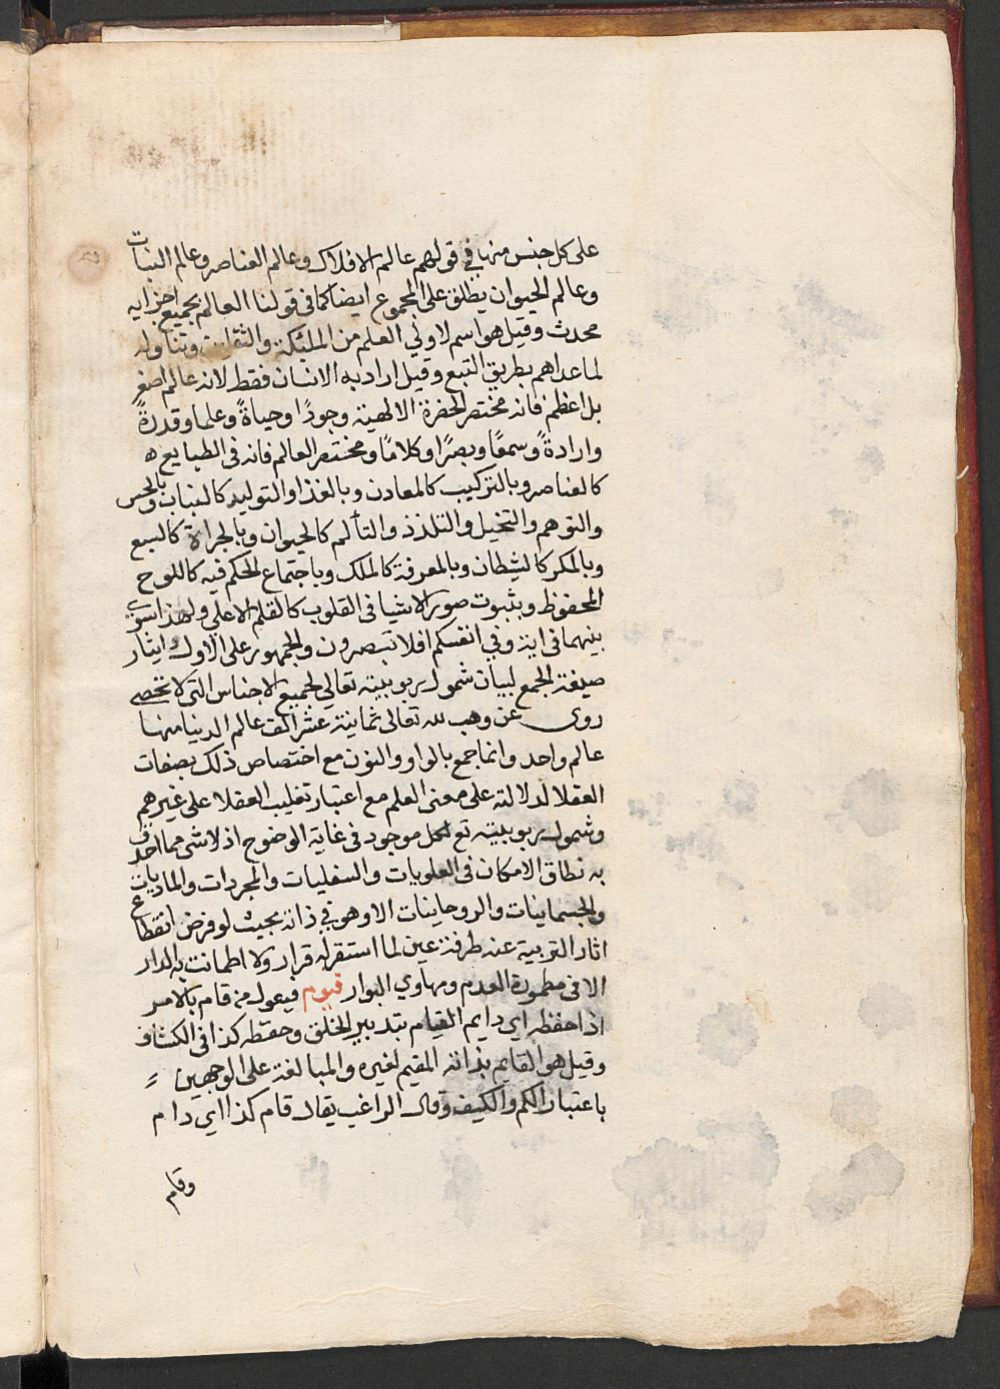 على كل جنس منها في قولهم عالم الافلاك وعالم العناصر وعالم النبات
وعالم الحيوان يطلق على المجموع ايضا كما في قولنا العالم بجميع اجزايه
محدث وقيل هو اسم لاولي العلم من الملئكة والثقلين وتناوله
لما عداهم بطريق التبع وقيل اراد به الانسان فقط لانه عالم اصغر
بل اعظم فانه مختصر الحضرة الالهية وجودًا وحياةً وعلما وقدرةً
وارادةً وسمعًا وبصرًا وكلامًا ومختصر العالم فانه في الطبايع
كالعناصر وبالتركيب كالمعادن وبالغذا والتوليد كالنبات وبالحس
والتوهم والتخيل والتلذذ والتألم كالحيوان وبالجراة كالسبع
وبالمكر كالشيطان وبالمعرفة كالملك وباجتماع الحكم فيه كاللوح
المحفوظ وبثبوت صور الاشيا في القلوب كالقلم الاعلي ولهذا سوى
بينهما في اية وفي انفسكم افلا تبصرون والجمهور على الاول وايثار
صيغة الجمع لبيان شمول ربوبيته تعالي لجميع الاجناس التي لا تحصى
روى عن وهب لله تعالى ثمانية عشر الف عالم الدنيا منها
عالم واحد وانما جمع بالواو والنون مع اختصاص ذلك بصفات
العقلا لدلالته على معنى العلم مع اعتبار تغليب العقلا على غيرهم
وشمول ربوبيته تع لكل موجود في غاية الوضوح اذ لا شى مما احدق
به نطاق الامكان في العلويات والسفليات والمجردات والماديات
والجسمانيات والروحانيات الا وهو في ذاته بحيث لو فرض انقطاع
اثار التربية عنه طرفة عين لما استقر له قرار ولا اطمانت به الدار
الا في مطمورة العدم ومهاوي البوار قيوم فيعول من قام بالامر
اذا حفظه اي دايم القيام بتدبير الخلق وحفظه كذا في الكشاف
وقيل هو القايم بذاته المقيم لغيره والمبالغة على الوجهين
باعتبار الكم والكيف وقال الراغب يقال قام كذا اي دام
وقام